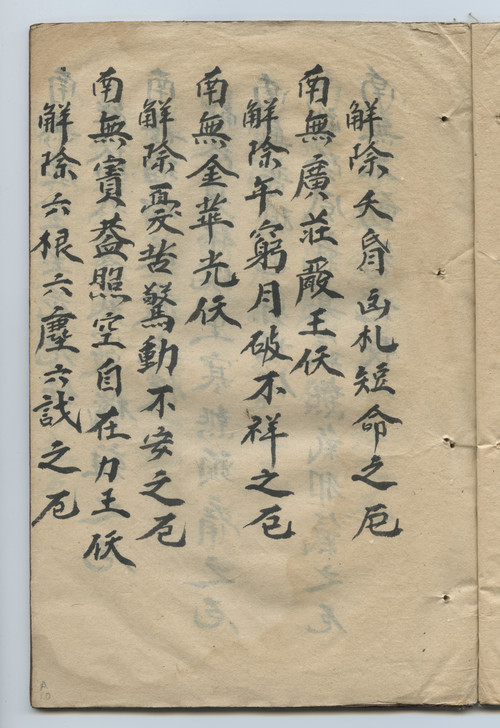 觧除夭昏凶札短命之厄
南無廣莊嚴王仸
觧除年窮月破不祥之厄
南無金華光仸
觧除憂苦驚動不安之厄
南無寶葢照空自在力王仸
觧除六根六塵六識之厄